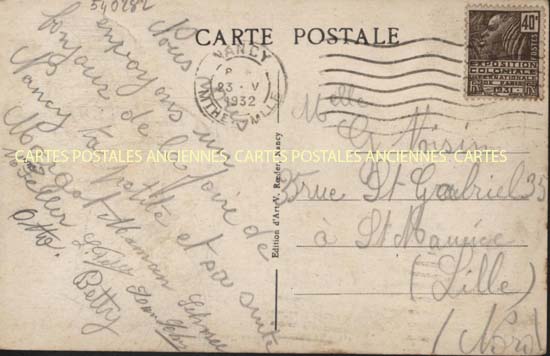 540282
CARTE POSTALE
NANCY
23 · V
1932
40c
POSTES
EXPOSITION
COLONIALE
INTERNATIONALE
DE PARIS
1931
Nous
envoyons un
bonjour de la foire de
Nancy ta petite et sa suite
Margot Maman
Feller
Otto.
Betty
Edition d'Art V. Rœfer, Nancy
Melle
G Voisin
35 rue St Gabriel 35
à St Maurice
(Lille)
(Nord)
CARTES POSTALES ANCIENNES CARTES POSTALES ANCIENNES CARTES